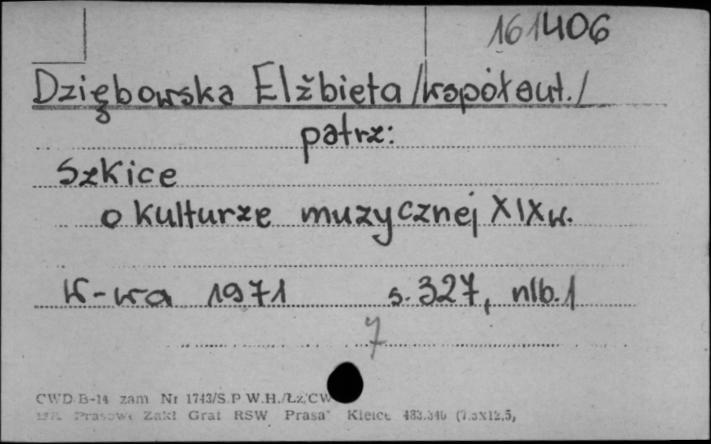 161406
Dziębowska Elżbieta /współaut./
patrz:
Szkice
o kulturze muzycznej XIX w.
W-wa 1971 s. 327, nlb. 1
7
CWD B-14 zam Nr 1743/S.P W.H./Łz/CW
Prasowe Zakł Graf RSW "Prasa" Kielce